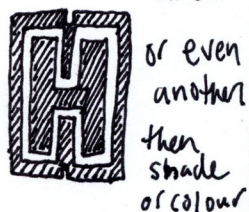 H
or even
another
then
shade
or colour